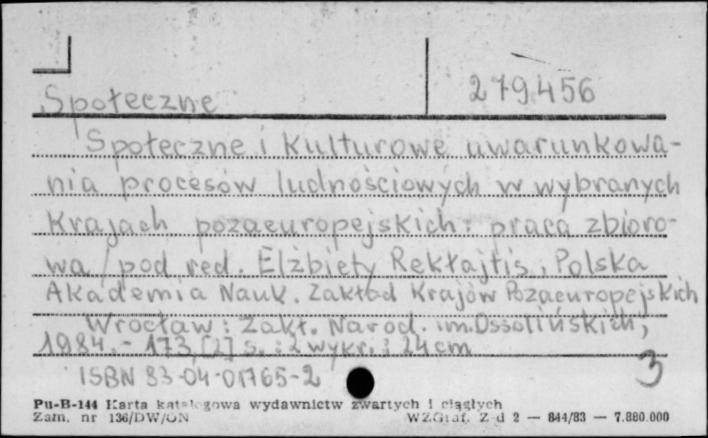 279.456
Społeczne
Społeczne i kulturowe uwarunkowa-
nia procesów ludnościowych w wybranych
krajach pozaeuropejskich : praca zbioro-
wa / pod red. Elżbiety Rekłajtis ; Polska
Akademia Nauk. Zakład Krajów Pozaeuropejskich
Wrocław : Zakł. Narod. im. Ossolińskich,
1984. - 173, [2] s. : 2 wykr. ; 24 cm
ISBN 83-04-01765-2
3
Pu-B-144 Karta katalogowa wydawnictw zwartych i ciągłych
Zam. nr 136/DW/ON WZGraf. Z-d 2 — 844/83 — 7.880.000